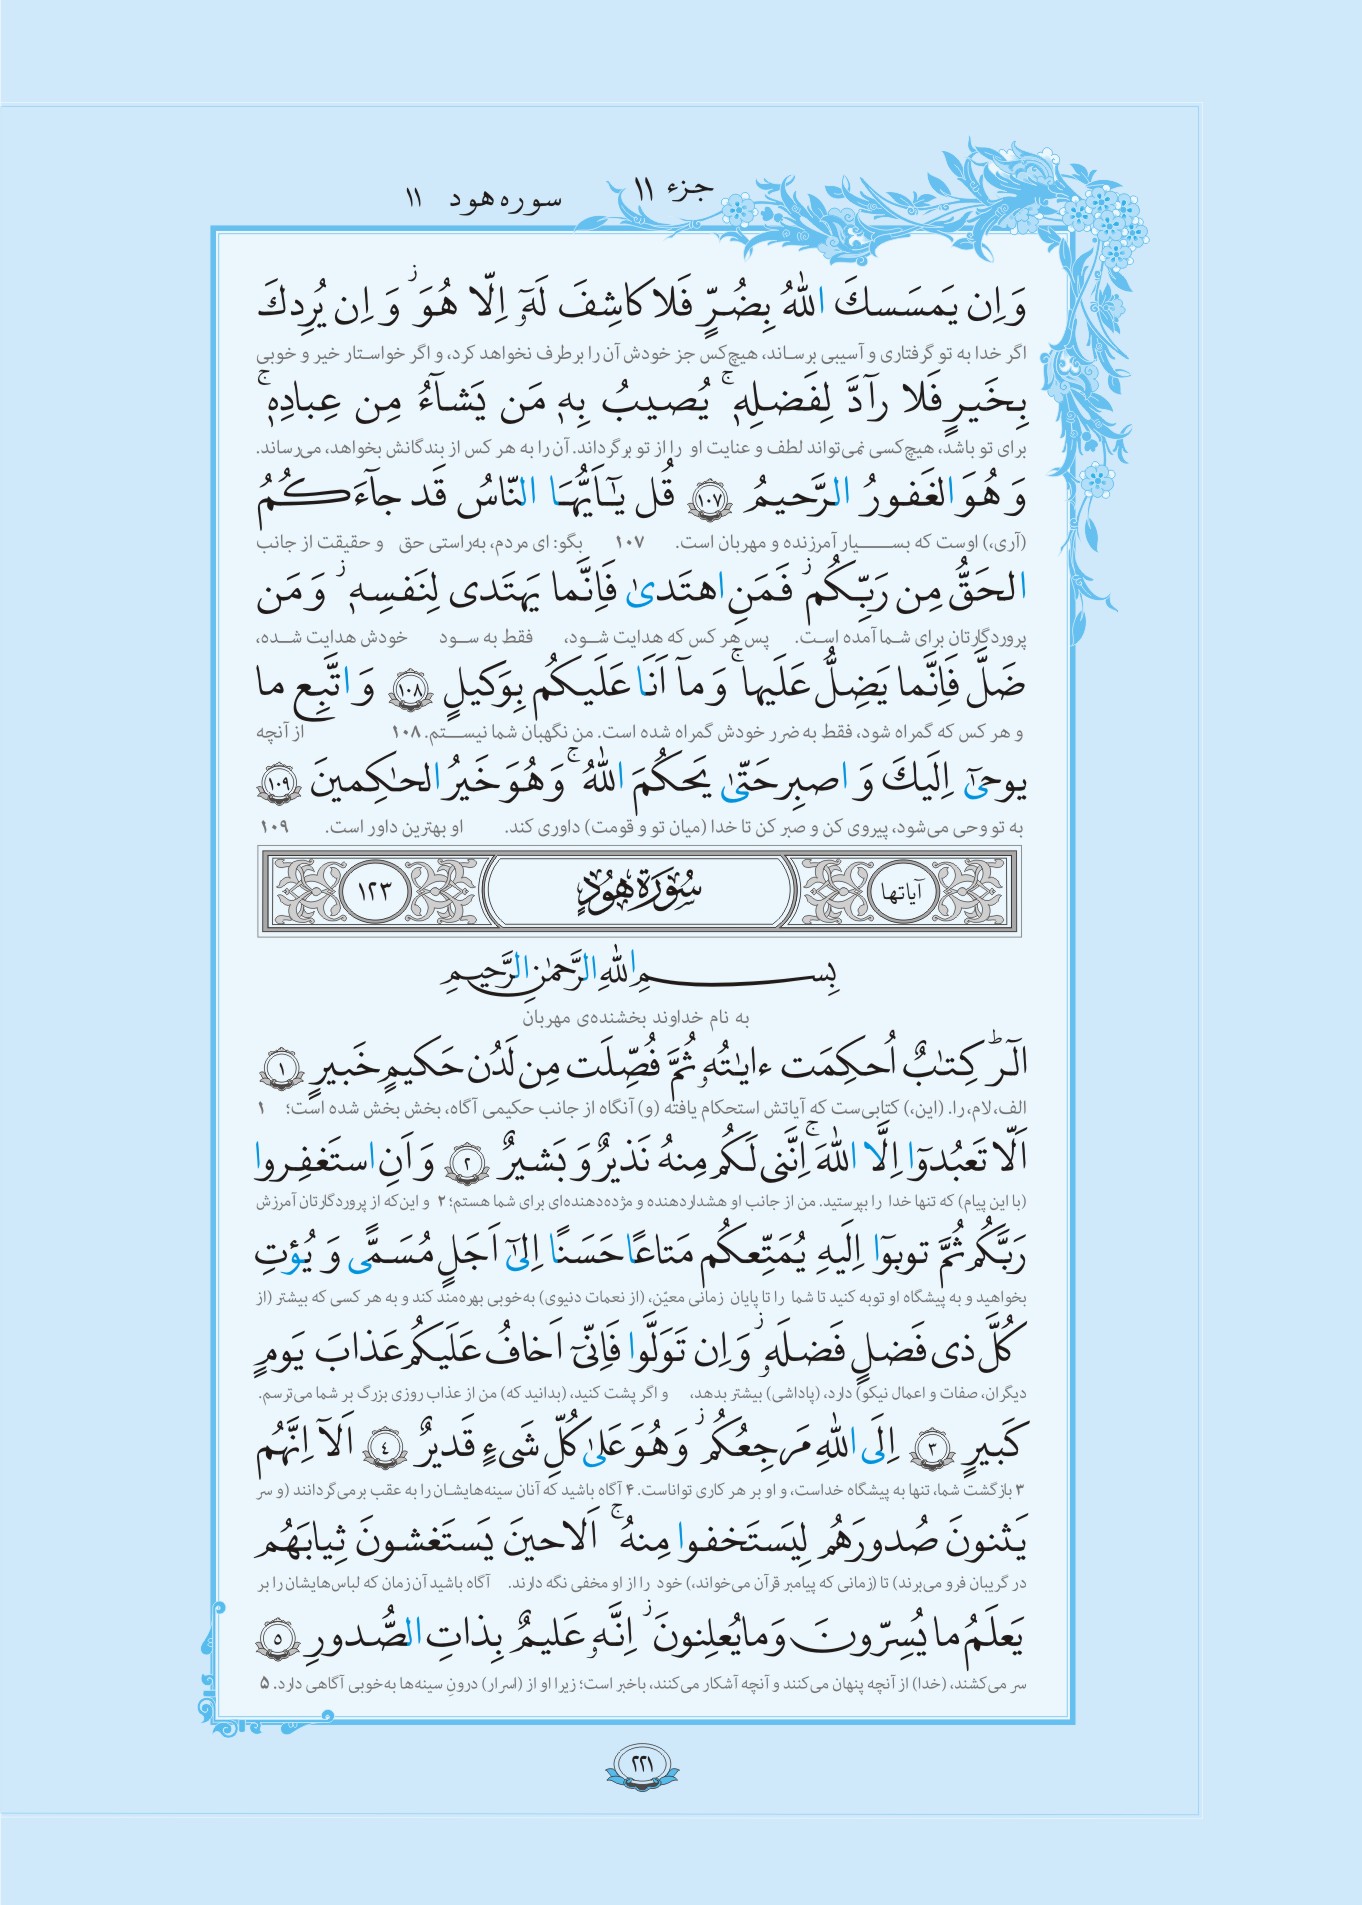 جزء ۱۱
سوره هود ۱۱
وَ اِن يَمسَسكَ اللّٰهُ بِضُرٍّ فَلا كاشِفَ لَهٗٓ اِلّا هُوَ ۖ وَ اِن يُرِدكَ
اگر خدا به تو گرفتاری و آسیبی برساند، هیچ‌کس جز خودش آن را برطرف نخواهد کرد، و اگر خواستار خیر و خوبی
بِخَيرٍ فَلا رآدَّ لِفَضلِهٖ ۚ يُصيبُ بِهٖ مَن يَشآءُ مِن عِبادِهٖ ۚ
برای تو باشد، هیچ‌کسی نمی‌تواند لطف و عنایت او را از تو برگرداند. آن را به هر کس از بندگانش بخواهد، می‌رساند.
وَ هُوَ الغَفورُ الرَّحيمُ ۱۰۷ قُل يٰٓاَيُّهَا النّاسُ قَد جآءَكُمُ
(آری،) اوست که بسیار آمرزنده و مهربان است. ۱۰۷ بگو: ای مردم، به‌راستی حق و حقیقت از جانب
الحَقُّ مِن رَبِّكُم ۖ فَمَنِ اهتَدىٰ فَاِنَّما يَهتَدى لِنَفسِهٖ ۖ وَ مَن
پروردگارتان برای شما آمده است. پس هر کس که هدایت شود، فقط به سود خودش هدایت شده،
ضَلَّ فَاِنَّما يَضِلُّ عَلَيها ۚ وَ مآ اَنَا عَلَيكُم بِوَكيلٍ ۱۰۸ وَ اتَّبِع ما
و هر کس که گمراه شود، فقط به ضرر خودش گمراه شده است. من نگهبان شما نیستم. ۱۰۸ از آنچه
يوحىٰٓ اِلَيكَ وَ اصبِر حَتّىٰ يَحكُمَ اللّٰهُ ۚ وَ هُوَ خَيرُ الحاكِمينَ ۱۰۹
به تو وحی می‌شود، پیروی کن و صبر کن تا خدا (میان تو و قومت) داوری کند. او بهترین داور است. ۱۰۹
آیاتها سُورَة هُودٍ ۱۲۳
بِسمِ اللّٰهِ الرَّحمٰنِ الرَّحيمِ
به نام خداوند بخشنده‌ی مهربان
الٓر ۚ كِتٰبٌ اُحكِمَت ءايٰتُهٗ ثُمَّ فُصِّلَت مِن لَدُن حَكيمٍ خَبيرٍ ۱
الف، لام، را. (این،) کتابی‌ست که آیاتش استحکام یافته (و) آنگاه از جانب حکیمی آگاه، بخش بخش شده است؛ ۱
اَلّا تَعبُدوٓا اِلَّا اللّٰهَ ۚ اِنَّنى لَكُم مِنهُ نَذيرٌ وَ بَشيرٌ ۲ وَ اَنِ استَغفِروا
(با این پیام) که تنها خدا را بپرستید. من از جانب او هشداردهنده و مژده‌دهنده‌ای برای شما هستم؛ ۲ و این‌که از پروردگارتان آمرزش
رَبَّكُم ثُمَّ توبوٓا اِلَيهِ يُمَتِّعكُم مَتاعًا حَسَنًا اِلىٰٓ اَجَلٍ مُسَمًّى وَ يُؤتِ
بخواهید و به پیشگاه او توبه کنید تا شما را تا پایان زمانی معیّن، (از نعمات دنیوی) به‌خوبی بهره‌مند کند و به هر کسی که بیشتر (از
كُلَّ ذى فَضلٍ فَضلَهٗ ۖ وَ اِن تَوَلَّوا فَاِنّىٓ اَخافُ عَلَيكُم عَذابَ يَومٍ
دیگران، صفات و اعمال نیکو) دارد، (پاداشی) بیشتر بدهد، و اگر پشت کنید، (بدانید که) من از عذاب روزی بزرگ بر شما می‌ترسم.
كَبيرٍ ۳ اِلَى اللّٰهِ مَرجِعُكُم ۖ وَ هُوَ عَلىٰ كُلِّ شَىءٍ قَديرٌ ٤ اَلآ اِنَّهُم
۳ بازگشت شما، تنها به پیشگاه خداست، و او بر هر کاری تواناست. ۴ آگاه باشید که آنان سینه‌هایشان را به عقب برمی‌گردانند (و سر
يَثنونَ صُدورَهُم لِيَستَخفوا مِنهُ ۚ اَلا حينَ يَستَغشونَ ثِيابَهُم
در گریبان فرو می‌برند) تا (زمانی که پیامبر قرآن می‌خواند،) خود را از او مخفی نگه دارند. آگاه باشید آن زمان که لباس‌هایشان را بر
يَعلَمُ ما يُسِرّونَ وَ ما يُعلِنونَ ۖ اِنَّهٗ عَليمٌ بِذاتِ الصُّدورِ ۵
سر می‌کشند، (خدا) از آنچه پنهان می‌کنند و آنچه آشکار می‌کنند، باخبر است؛ زیرا او از (اسرار) درونِ سینه‌ها به‌خوبی آگاهی دارد. ۵
۲۲۱